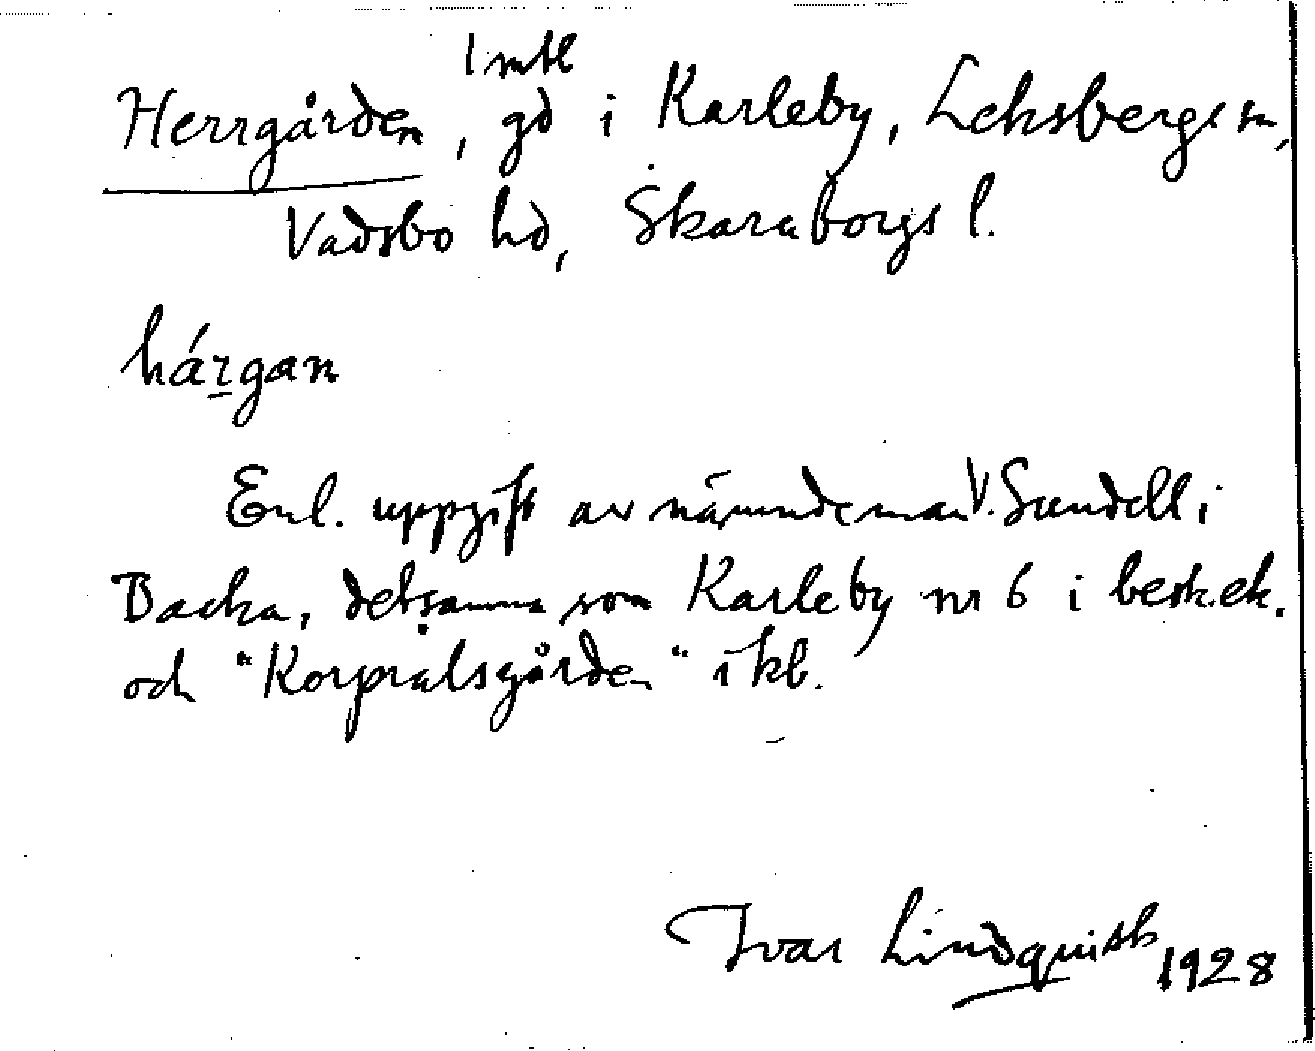 1 mtl
Herrgården, gd i Karleby, Leksbergs sn,
Vadsbo hd, Skaraborgs l.
hárgan
Enl. uppgift av nämndeman V. Sundell i
Backa, detsamma som Karleby nr 6 i besk. ek.
och "Korpralsgården" i kb.
Ivar Lindquist 1928